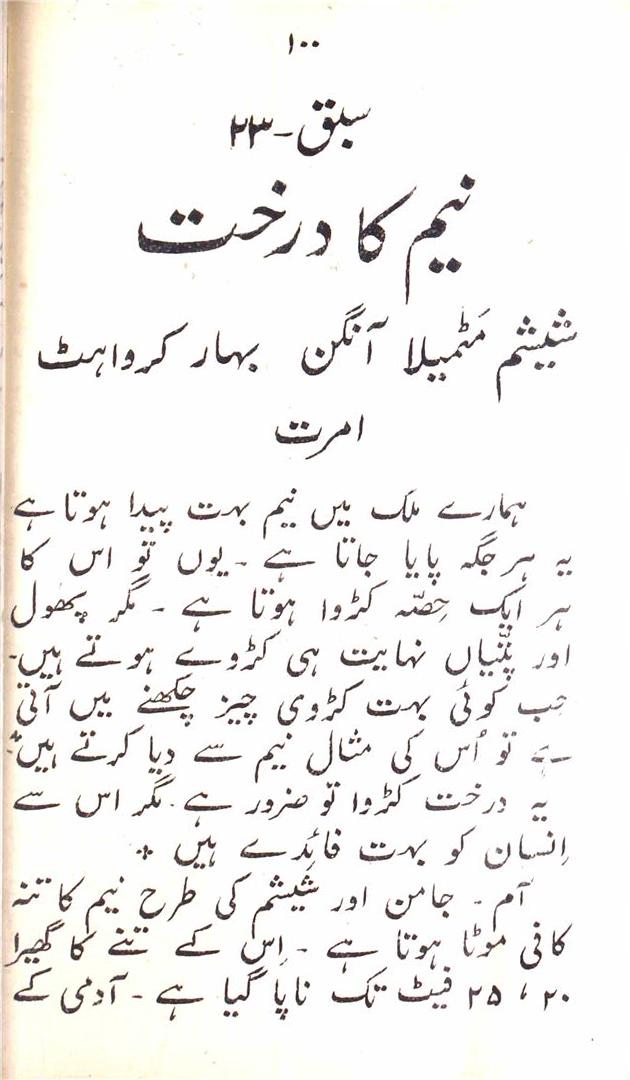 ۱۰۰
سبق - ۲۳
نیم کا درخت
شیشم مَٹمیلا آنگن بہار کرواہٹ
امرت
ہمارے ملک میں نیم بہت پیدا ہوتا ہے
یہ ہر جگہ پایا جاتا ہے ۔ یوں تو اس کا
ہر ایک حِصّہ کڑوا ہوتا ہے ۔ مگر پھول
اور پتّیاں نہایت ہی کڑوے ہوتے ہیں۔
جب کوئی بہت کڑوی چیز چکھنے میں آتی
ہے تو اُس کی مثال نیم سے دیا کرتے ہیں*
یہ درخت کڑوا تو ضرور ہے ۔ مگر اس سے
اِنسان کو بہت فائدے ہیں *
آم ۔ جامن اور شیشم کی طرح نیم کا تنہ
کافی موٹا ہوتا ہے ۔ اِس کے تنے کا گھیرا
۲۰ ، ۲۵ فیٹ تک ناپا گیا ہے ۔ آدمی کے